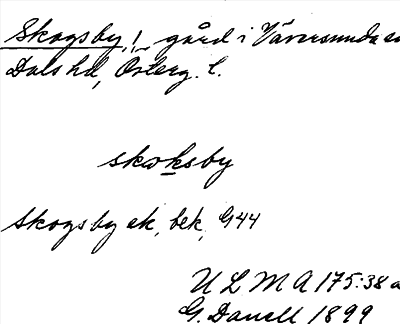 Skogsby, !, gård i Väversunda sn
Dals hd, Österg. l.
skωksby
Skogsby ek, bek, G44
ULMA 175:38 a
G. Danell 1899